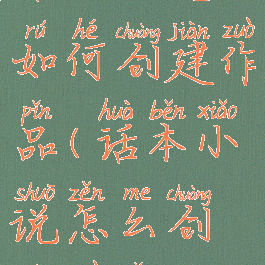 rú hé chuàng jiàn zuò
如何创建作
pǐn huà běn xiǎo
品(话本小
shuō zěn me chuàng
说怎么创